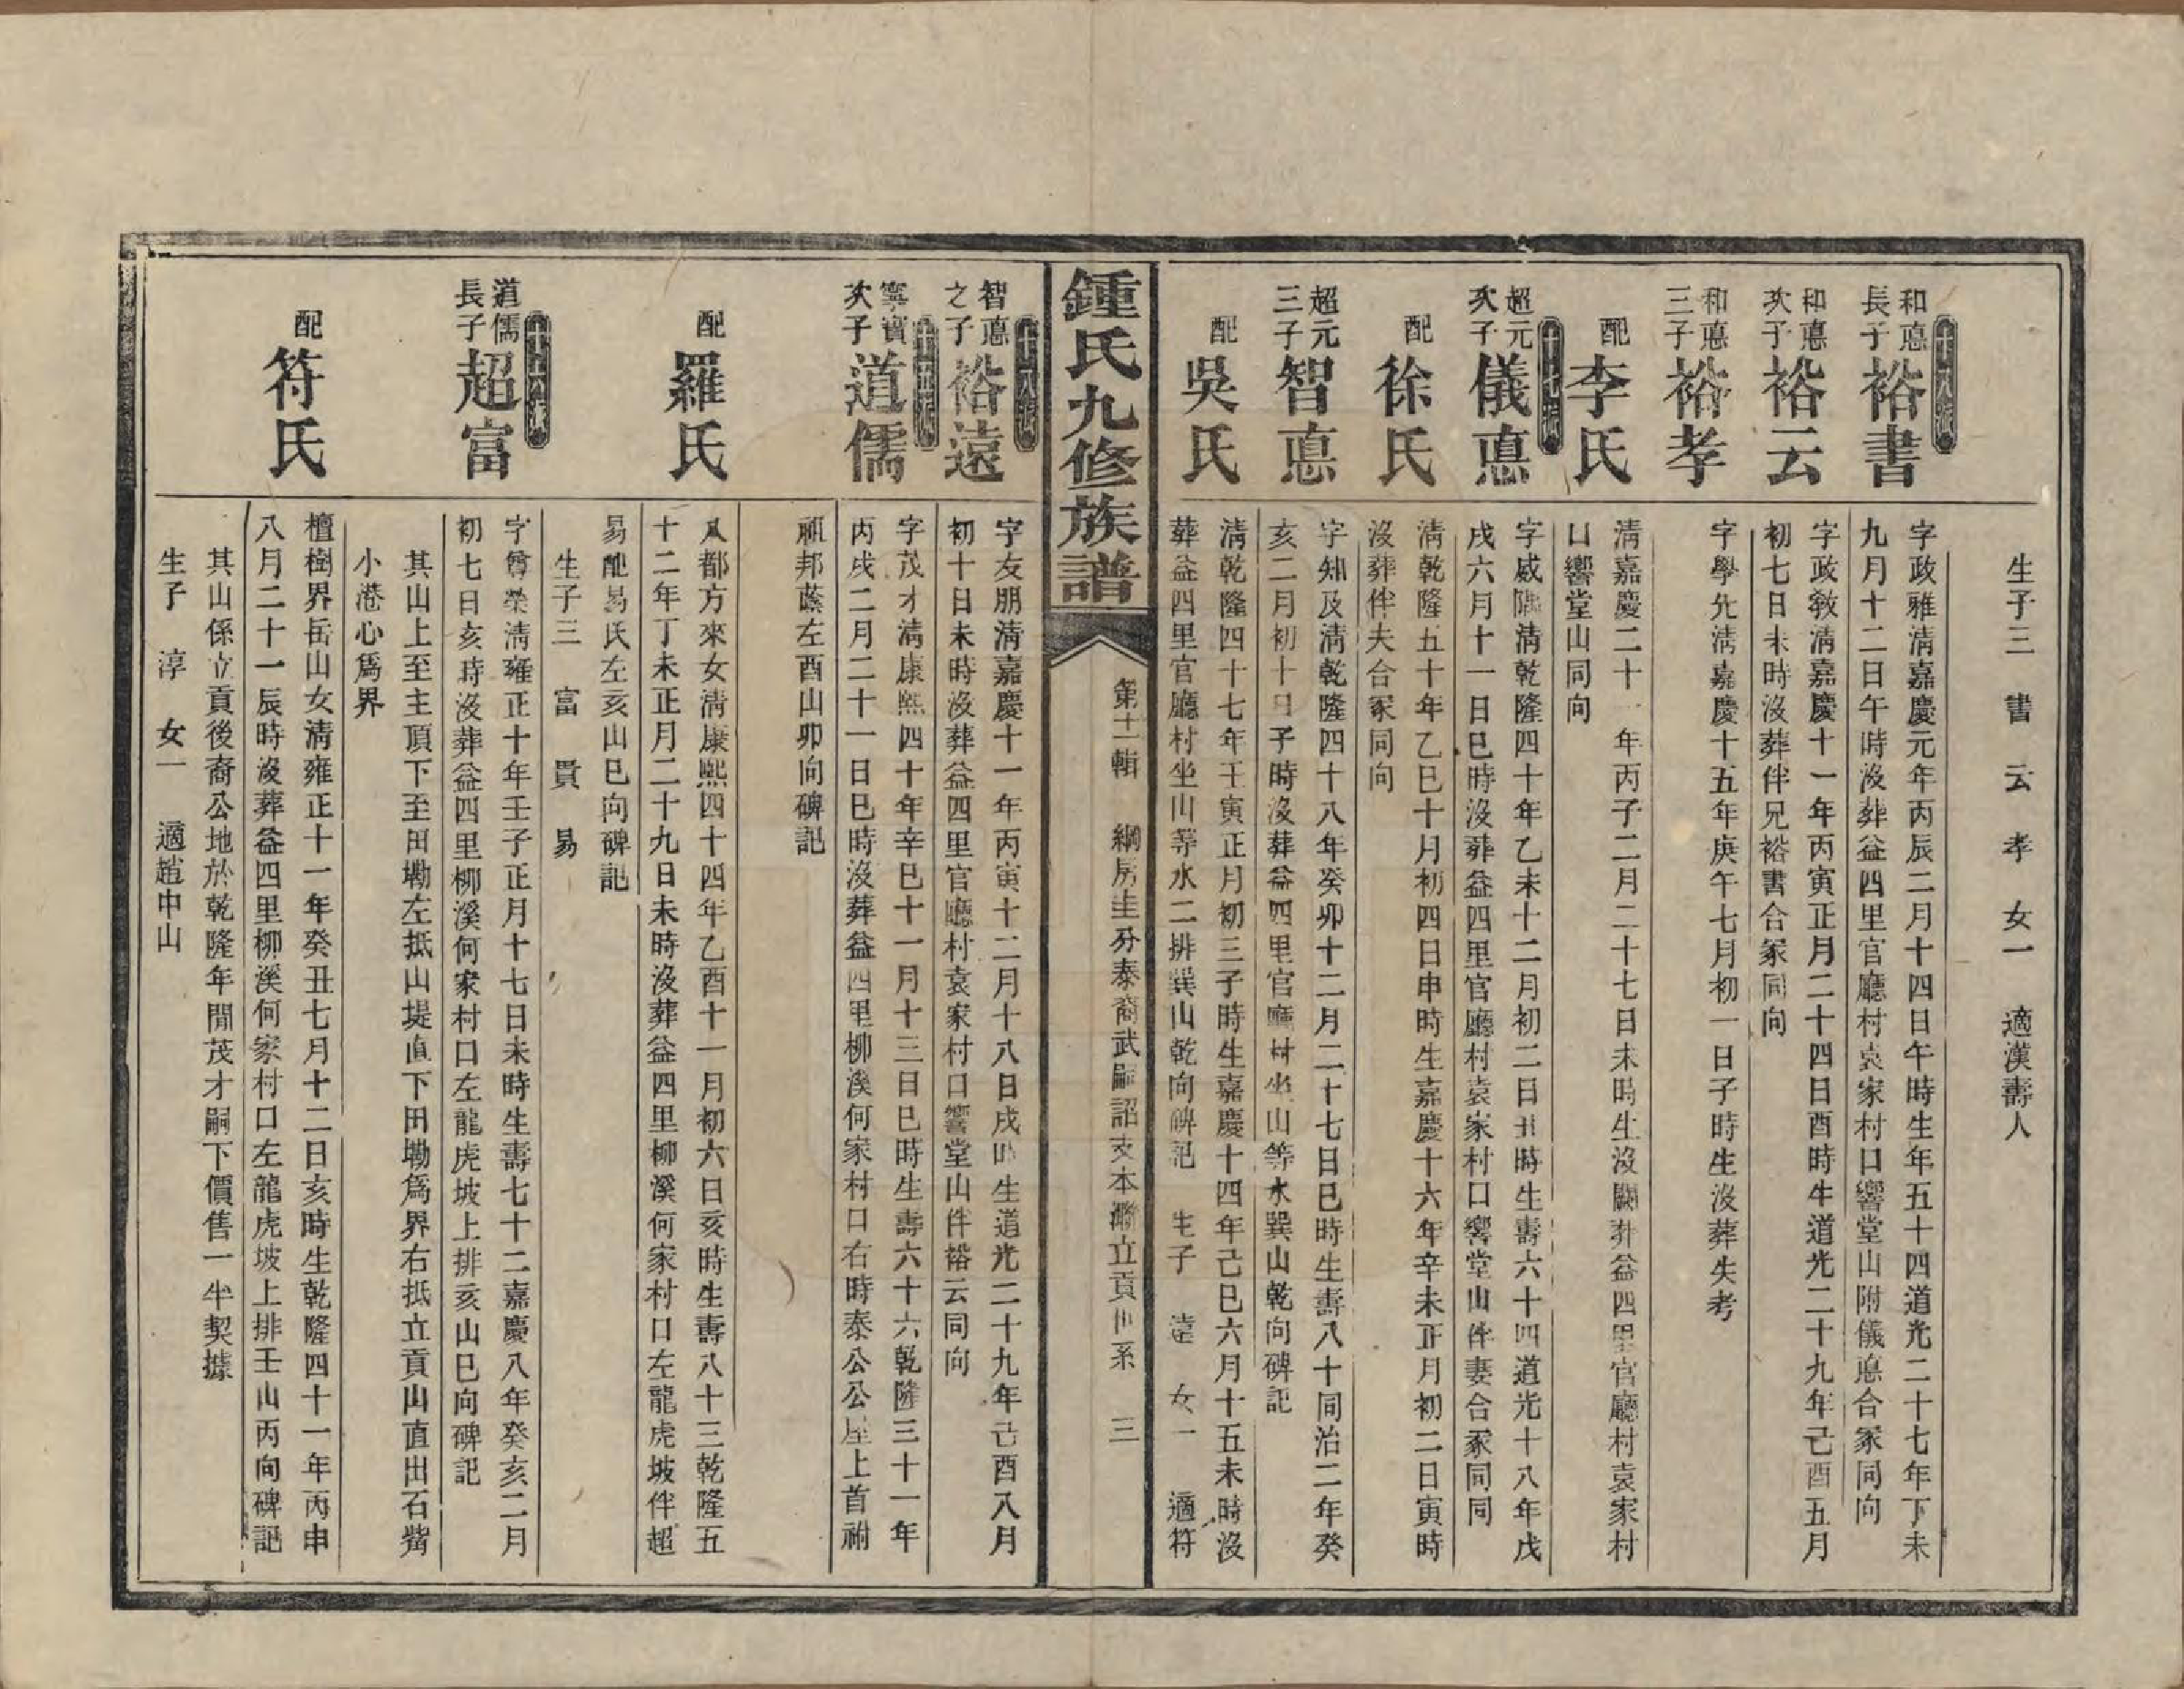 生子三 書 云 孝 女一 適漢壽人
十八派
和悳長子 裕書
字政雅清嘉慶元年丙辰二月十四日午時生年五十四道光二十七年丁未
九月十二日午時沒葬益四里官廳村袁家村口響堂山附儀悳合冢同向
和悳次子 裕云
字政敎清嘉慶十一年丙寅正月二十四日酉時生道光二十九年己酉五月
初七日未時沒葬伴兄裕書合冢同向
和悳三子 裕孝
字學允清嘉慶十五年庚午七月初一日子時生沒葬失考
配 李氏
清嘉慶二十一年丙子二月二十七日未時生沒闕葬益四里官廳村袁家村
口響堂山同向
十七派
超元次子 儀悳
字威陽清乾隆四十年乙未十二月初二日丑時生壽六十四道光十八年戊
戌六月十一日巳時沒葬益四里官廳村袁家村口響堂山伴妻合冢同同
配 徐氏
清乾隆五十年乙巳十月初四日申時生嘉慶十六年辛未正月初二日寅時
沒葬伴夫合冢同向
超元三子 智悳
字知及清乾隆四十八年癸卯十二月二十七日巳時生壽八十同治二年癸
亥二月初十日子時沒葬益四里官廳村坐山等水巽山乾向碑記
配 吳氏
清乾隆四十七年壬寅正月初三子時生嘉慶十四年己巳六月十五未時沒
葬益四里官廳村坐山等水二排巽山乾向碑記 生子 遠 女一 適符
鍾氏九修族譜
第十一輯 綱房圭分泰裔武嗣詔支本灦立貢世系 三
十八派
智悳之子 裕遠
字友朋清嘉慶十一年丙寅十二月十八日戌時生道光二十九年己酉八月
初十日未時沒葬益四里官廳村袁家村口響堂山伴裕云同向
十五派
寧寶次子 道儒
字茂才清康熙四十年辛巳十一月十三日巳時生壽六十六乾隆三十一年
丙戌二月二十一日巳時沒葬益四里柳溪何家村口右時泰公公屋上首祔
祖邦蔭左酉山卯向碑記
配 羅氏
八都方來女清康熙四十四年乙酉十一月初六日亥時生壽八十三乾隆五
十二年丁未正月二十九日未時沒葬益四里柳溪何家村口左龍虎坡伴超
易配易氏左亥山巳向碑記
生子三 富 貫 易
十六派
道儒長子 超富
字尊榮清雍正十年壬子正月十七日未時生壽七十二嘉慶八年癸亥二月
初七日亥時沒葬益四里柳溪何家村口左龍虎坡上排亥山巳向碑記
其山上至主頂下至田墈左抵山堤直下田墈爲界右抵立貢山直出石觜
小港心爲界
配 符氏
檀樹界岳山女清雍正十一年癸丑七月十二日亥時生乾隆四十一年丙申
八月二十一辰時沒葬益四里柳溪何家村口左龍虎坡上排壬山丙向碑記
其山係立貢後裔公地於乾隆年閒茂才嗣下價售一半契據
生子 淳 女一 適趙中山